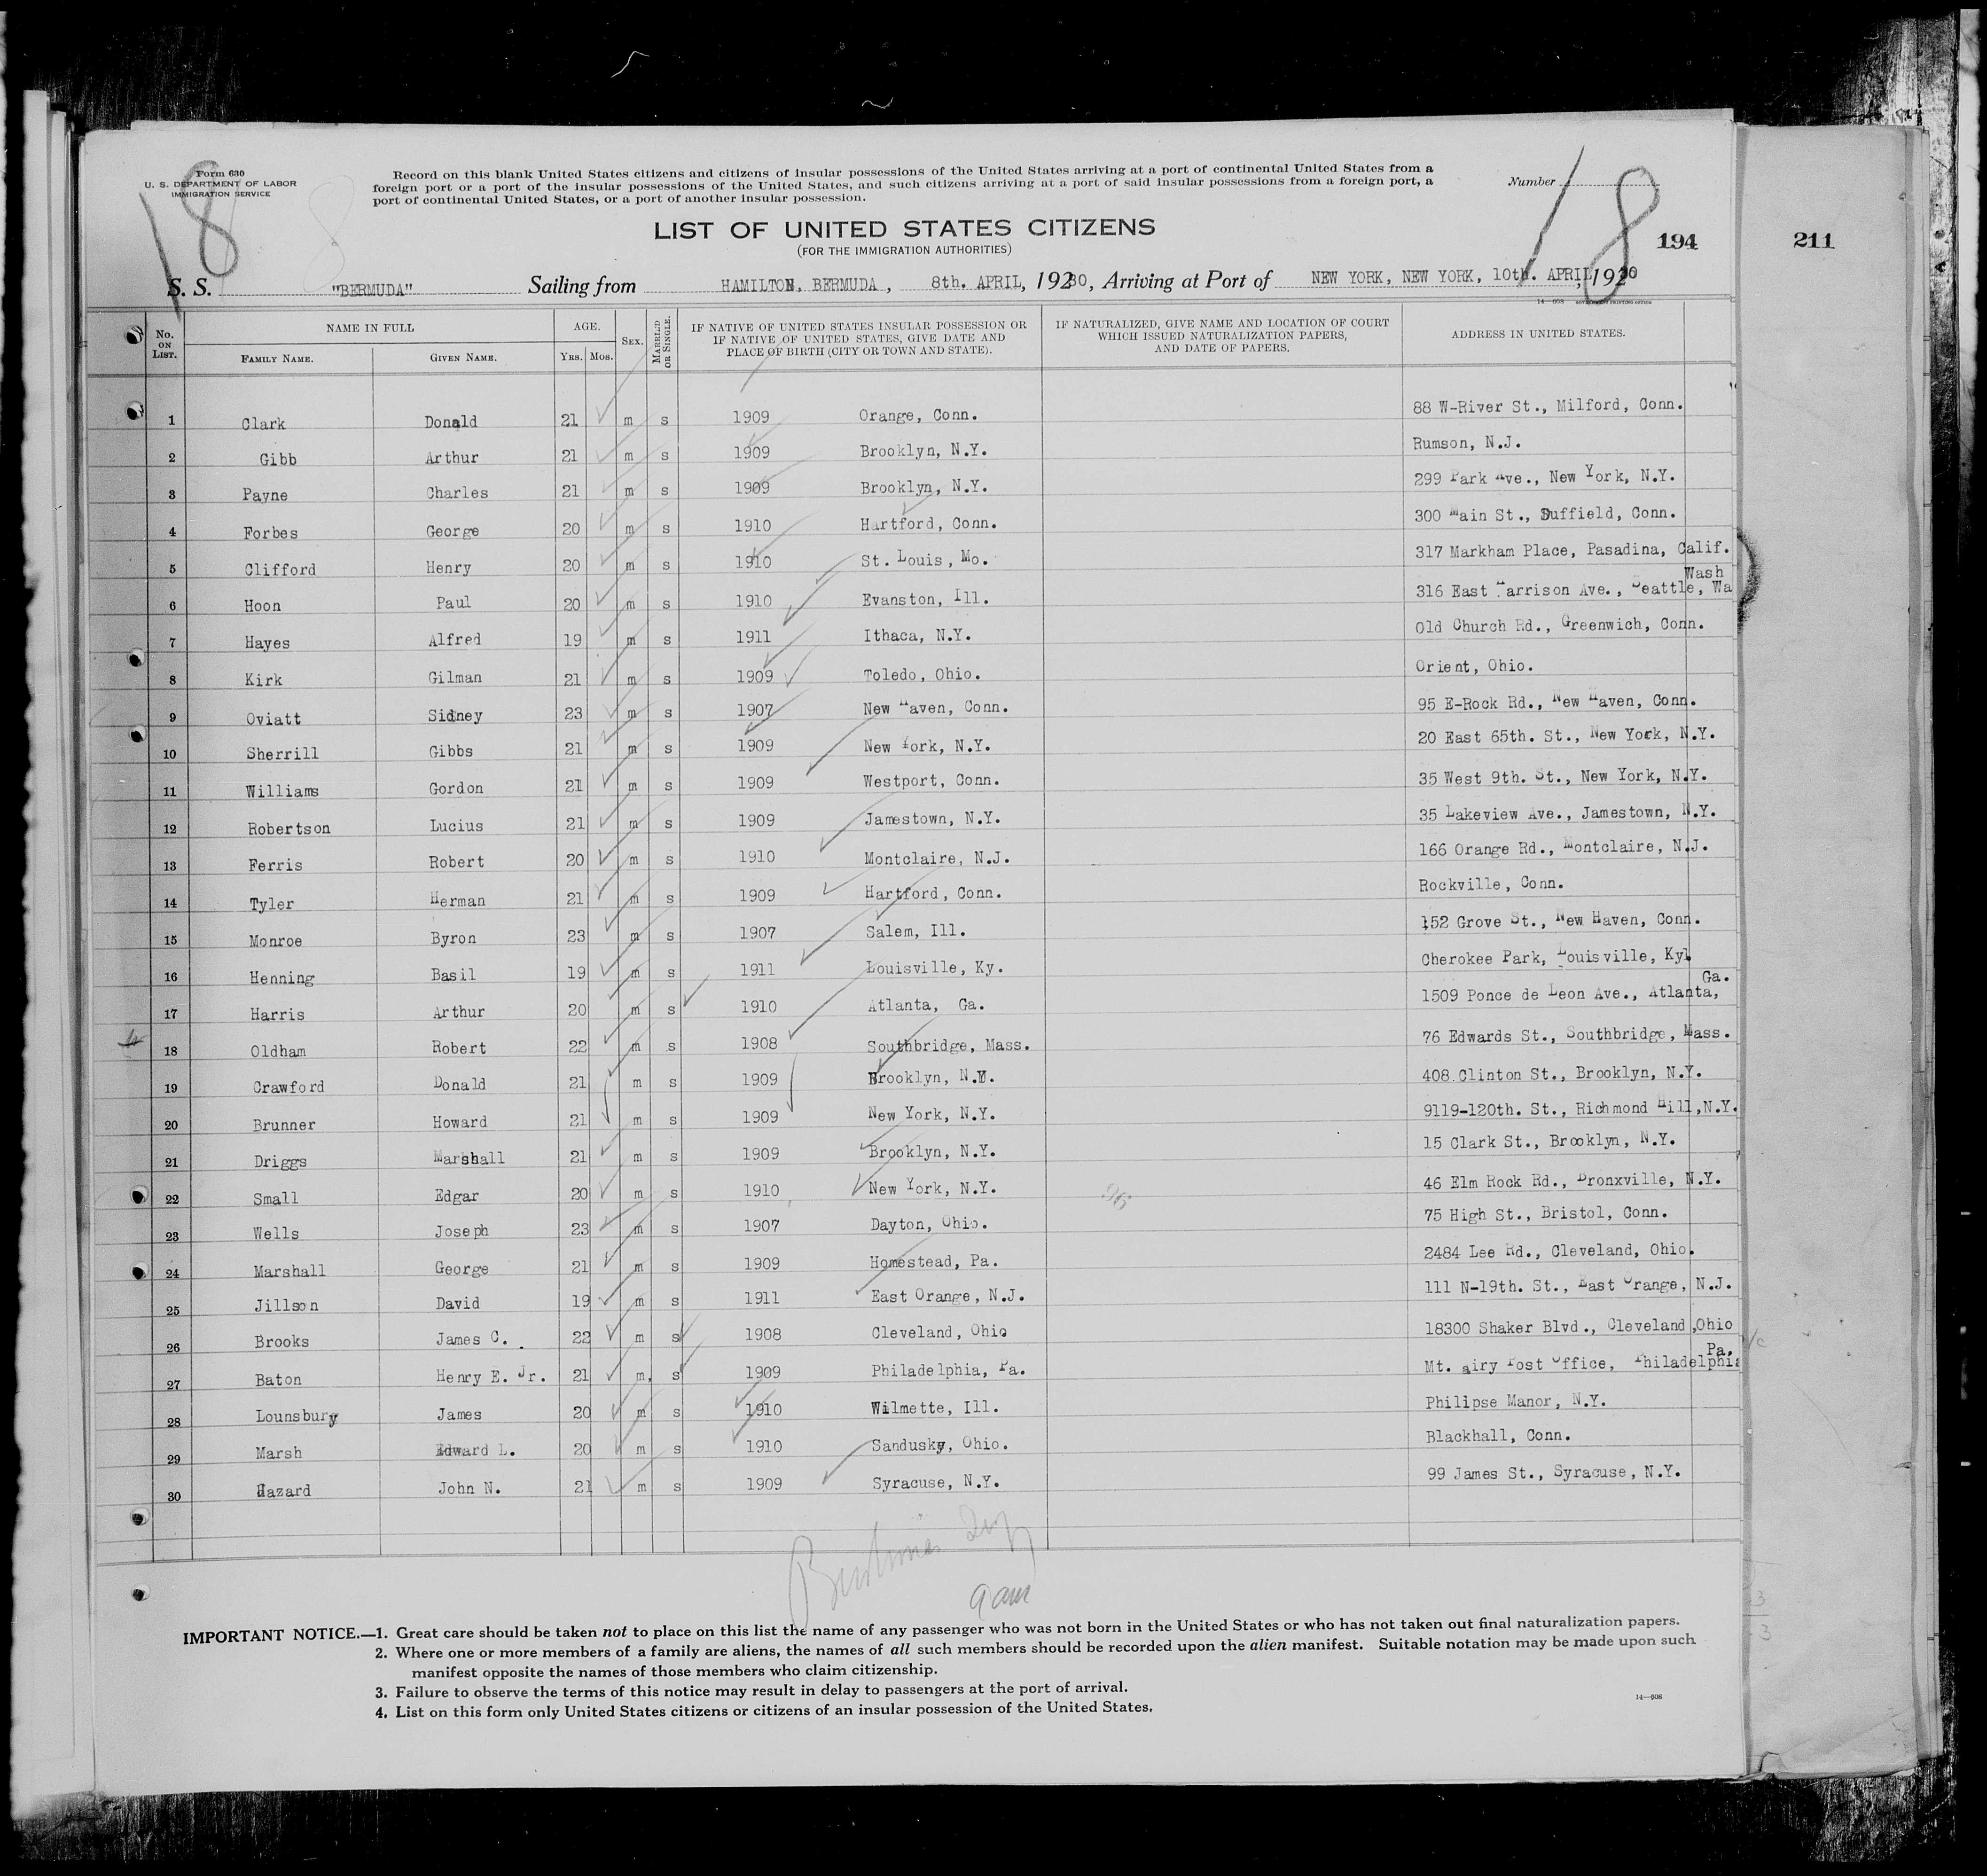 Form 630
U. S. DEPARTMENT OF LABOR
IMMIGRATION SERVICE
18
Record on this blank United States citizens and citizens of insular possessions of the United States arriving at a port of continental United States from a
foreign port or a port of the insular possessions of the United States, and such citizens arriving at a port of said insular possessions from a foreign port, a
port of continental United States, or a port of another insular possession.
Number
18
LIST OF UNITED STATES CITIZENS
(FOR THE IMMIGRATION AUTHORITIES)
194
211
S. S. "BERMUDA" Sailing from HAMILTON, BERMUDA, 8th. APRIL, 1930, Arriving at Port of NEW YORK, NEW YORK, 10th. APRIL, 1930
14—608 GOVERNMENT PRINTING OFFICE
No. ON LIST. NAME IN FULL FAMILY NAME. GIVEN NAME. AGE. YRS. MOS. SEX. MARRIED OR SINGLE. IF NATIVE OF UNITED STATES INSULAR POSSESSION OR IF NATIVE OF UNITED STATES, GIVE DATE AND PLACE OF BIRTH (CITY OR TOWN AND STATE). IF NATURALIZED, GIVE NAME AND LOCATION OF COURT WHICH ISSUED NATURALIZATION PAPERS, AND DATE OF PAPERS. ADDRESS IN UNITED STATES.
1 Clark Donald 21 m s 1909 Orange, Conn. 88 W-River St., Milford, Conn.
2 Gibb Arthur 21 m s 1909 Brooklyn, N.Y. Rumson, N.J.
3 Payne Charles 21 m s 1909 Brooklyn, N.Y. 299 Park Ave., New York, N.Y.
4 Forbes George 20 m s 1910 Hartford, Conn. 300 Main St., Suffield, Conn.
5 Clifford Henry 20 m s 1910 St. Louis, Mo. 317 Markham Place, Pasadina, Calif.
6 Hoon Paul 20 m s 1910 Evanston, Ill. 316 East Harrison Ave., Seattle, Wa Wash
7 Hayes Alfred 19 m s 1911 Ithaca, N.Y. Old Church Rd., Greenwich, Conn.
8 Kirk Gilman 21 m s 1909 Toledo, Ohio. Orient, Ohio.
9 Oviatt Sidney 23 m s 1907 New Haven, Conn. 95 E-Rock Rd., New Haven, Conn.
10 Sherrill Gibbs 21 m s 1909 New York, N.Y. 20 East 65th. St., New York, N.Y.
11 Williams Gordon 21 m s 1909 Westport, Conn. 35 West 9th. St., New York, N.Y.
12 Robertson Lucius 21 m s 1909 Jamestown, N.Y. 35 Lakeview Ave., Jamestown, N.Y.
13 Ferris Robert 20 m s 1910 Montclaire, N.J. 166 Orange Rd., Montclaire, N.J.
14 Tyler Herman 21 m s 1909 Hartford, Conn. Rockville, Conn.
15 Monroe Byron 23 m s 1907 Salem, Ill. 152 Grove St., New Haven, Conn.
16 Henning Basil 19 m s 1911 Louisville, Ky. Cherokee Park, Louisville, Ky.
17 Harris Arthur 20 m s 1910 Atlanta, Ga. 1509 Ponce de Leon Ave., Atlanta, Ga.
18 Oldham Robert 22 m s 1908 Southbridge, Mass. 76 Edwards St., Southbridge, Mass.
19 Crawford Donald 21 m s 1909 Brooklyn, N.Y. 408 Clinton St., Brooklyn, N.Y.
20 Brunner Howard 21 m s 1909 New York, N.Y. 9119-120th. St., Richmond Hill, N.Y.
21 Driggs Marshall 21 m s 1909 Brooklyn, N.Y. 15 Clark St., Brooklyn, N.Y.
22 Small Edgar 20 m s 1910 New York, N.Y. 46 Elm Rock Rd., Bronxville, N.Y.
23 Wells Joseph 23 m s 1907 Dayton, Ohio. 75 High St., Bristol, Conn.
24 Marshall George 21 m s 1909 Homestead, Pa. 2484 Lee Rd., Cleveland, Ohio.
25 Jillson David 19 m s 1911 East Orange, N.J. 111 N-19th. St., East Orange, N.J.
26 Brooks James C. 22 m s 1908 Cleveland, Ohio 18300 Shaker Blvd., Cleveland, Ohio
27 Baton Henry E. Jr. 21 m s 1909 Philadelphia, Pa. Mt. airy Post Office, Philadelphia Pa.
28 Lounsbury James 20 m s 1910 Wilmette, Ill. Philipse Manor, N.Y.
29 Marsh Edward L. 20 m s 1910 Sandusky, Ohio. Blackhall, Conn.
30 Hazard John N. 21 m s 1909 Syracuse, N.Y. 99 James St., Syracuse, N.Y.
9 am
IMPORTANT NOTICE.—1. Great care should be taken not to place on this list the name of any passenger who was not born in the United States or who has not taken out final naturalization papers.
2. Where one or more members of a family are aliens, the names of all such members should be recorded upon the alien manifest. Suitable notation may be made upon such
manifest opposite the names of those members who claim citizenship.
3. Failure to observe the terms of this notice may result in delay to passengers at the port of arrival.
4. List on this form only United States citizens or citizens of an insular possession of the United States.
14—608